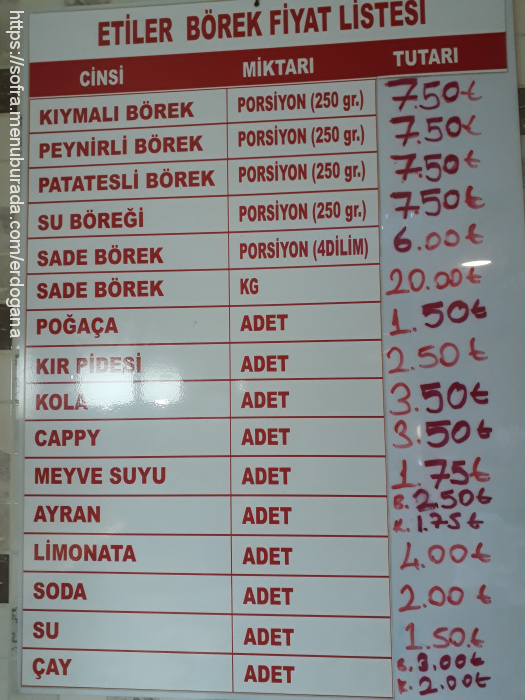 https://sofra.menuburada.com/erdogana
ETİLER BÖREK FİYAT LİSTESİ
CİNSİ MİKTARI TUTARI
KIYMALI BÖREK PORSİYON (250 gr.) 7.50₺
PEYNİRLİ BÖREK PORSİYON (250 gr.) 7.50₺
PATATESLİ BÖREK PORSİYON (250 gr.) 7.50₺
SU BÖREĞİ PORSİYON (250 gr.) 7.50₺
SADE BÖREK PORSİYON (4DİLİM) 6.00₺
SADE BÖREK KG 20.00₺
POĞAÇA ADET 1.50₺
KIR PİDESİ ADET 2.50₺
KOLA ADET 3.50₺
CAPPY ADET 3.50₺
MEYVE SUYU ADET 1.75₺
AYRAN ADET B. 2.50₺
K. 1.75₺
LİMONATA ADET 4.00₺
SODA ADET 2.00₺
SU ADET 1.50.₺
ÇAY ADET B. 3.00₺
K. 2.00₺